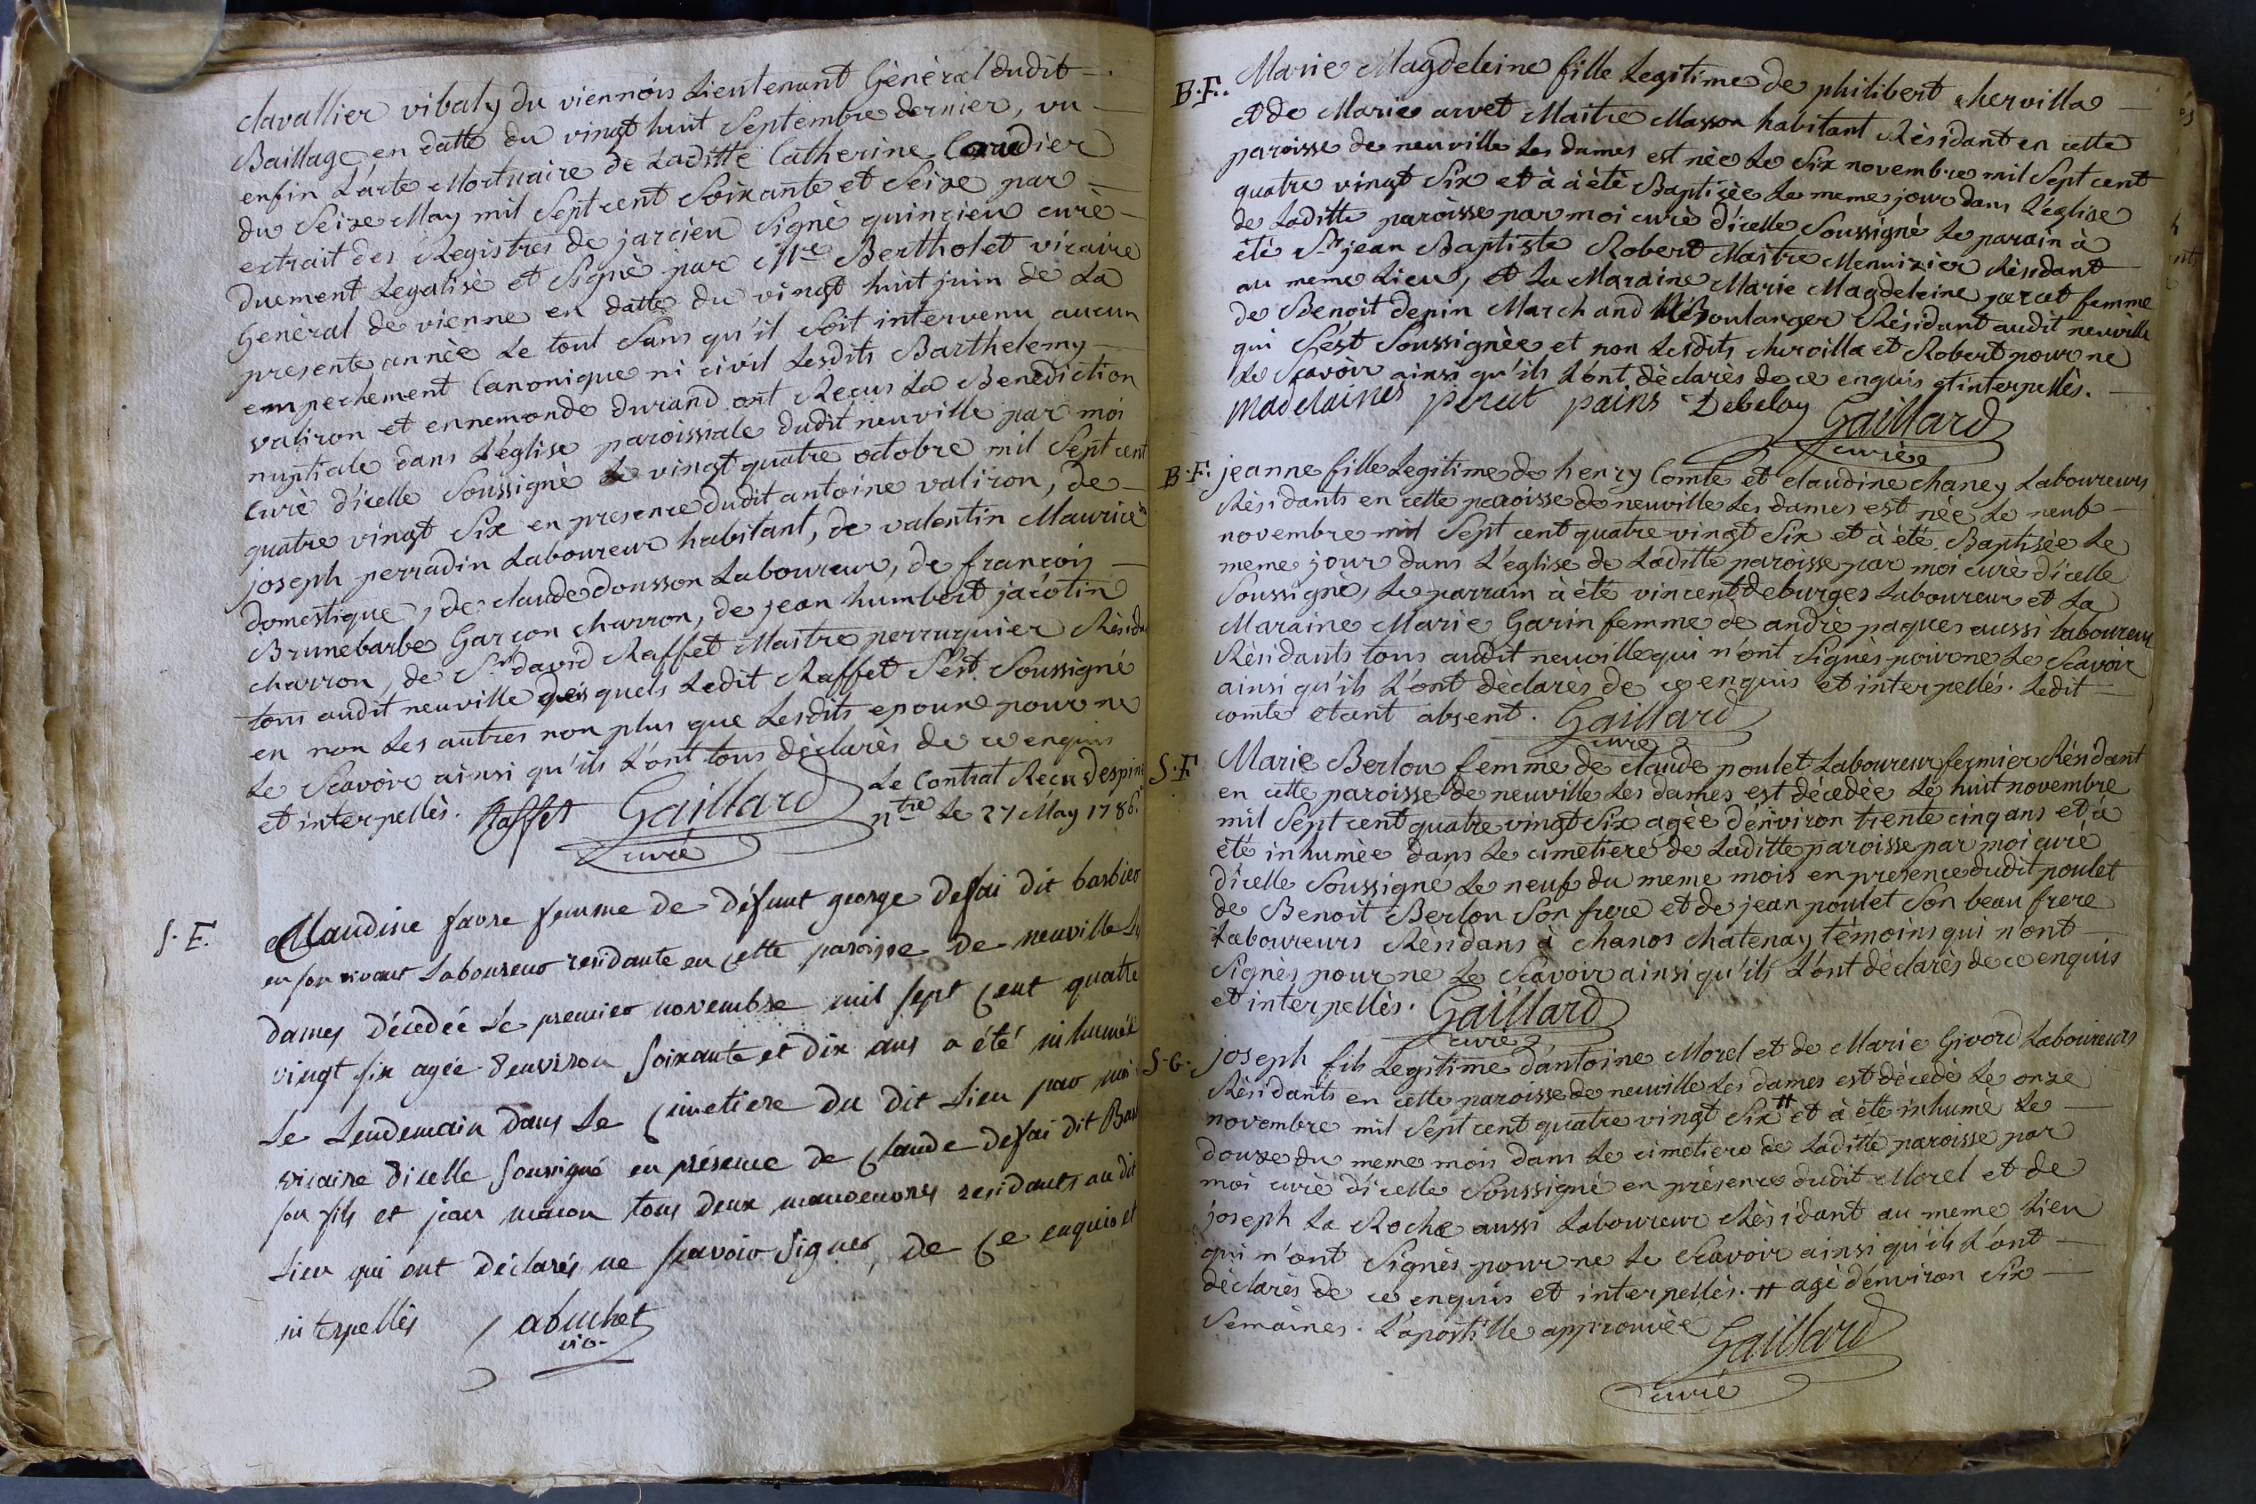 clavallier vibaly du viennois Lieutenant Gènèral dudit
Baillage en datte du vingt huit Septembre dernier, vu
enfin L'acte Mortuaire de Laditte Catherine
du Seize May mil Sept cent Soixante et Seize par
extrait des Registres de jarcieu Signè quincieu curè
duement Legalisè et Signè par Mre Bertholet vicaire
Gènèral de vienne en datte du vingt huit juin de La
presente annèe Le tout Sans qu'il Soit intervenu aucun
empechement Canonique ni civil Lesdits Barthelemy
valiron et ennemonde durand ont Recus La Benediction
nuptiale dans L'église paroissiale dudit neuville par moi
Curè d'icelle Soussignè Le vingt quatre octobre mil Sept cent
quatre vingt Six en presence dudit antoine valiron, de
joseph perradin Laboureur habitant, de valentin Maurice
domestique, de claude dousson Laboureur, de françois
Brunebarbe Garçon charron, de jean humbert jacotin
charron, de Sr david Raffet Maitre perruquier Résida
tous audit neuville desquels Ledit Raffet S'est Soussigné
en non Les autres non plus que Lesdits epoux pour ne
Le Scavoir ainsi qu'ils L'ont tous dèclarès de ce enquis
et interpellès. Raffet Gaillard curé
Le Contrat Recu Despine
ntre Le 27 May 1786.
S. F. Claudine favre femme de défunt george defai dit barbier
en son vivant Laboureur residante en cette paroisse de neuville Les
dames décedée Le premier novembre mil sept cent quatre
vingt six agée d'environ soixante et dix ans a été inhumée
Le Lendemain dans Le cimetiere du dit Lieu par moi
vicaire dicelle soussigné en présence de claude defai dit Bar
son fils et jean macon tous deux manoeuvres residants au dit
Lieu qui ont déclarés ne scavoir signer, de ce enquis et
interpellés abuchet
vic.
B. F. Marie Magdeleine fille Legitime de philibert chervilla
et de Marie arvet Maitre Masson habitant Rèsidant en cette
paroisse de neuville Les dames est nèe Le Six novembre mil Sept cent
quatre vingt Six et à à étè Baptisèe Le meme jour dans L'église
de Laditte paroisse par moi curè d'icelle Soussignè Le parain à
été Sr jean Baptiste Robert Maitre Menuizier Rèsidant
au meme Lieu, et La Maraine Marie Magdeleine percet femme
de Benoit depin Marchand Boulanger Rèsidant audit neuville
qui S'est Soussignèe et non Lesdits chervilla et Robert pour ne
Le Scavoir ainsi qu'ils L'ont dèclarès de ce enquis et interpellès.
madelaines percet pains Debelay Gaillard
curé
B. F. jeanne fille Legitime de henry Comte et claudine chaney Laboureurs
Rèsidants en cette paroisse de neuville Les dames est nèe Le neuf
novembre mil Sept cent quatre vingt Six et à été Baptisèe Le
meme jour dans L'église de Laditte paroisse par moi curè d'icelle
Soussignè, Le parrain à été vincent deburges Laboureur et La
Maraine Marie Garin femme de andrè paques aussi Laboureur
Rèsidants tous audit neuville qui n'ont Signès pour ne Le Scavoir
ainsi qu'ils L'ont dèclarès de ce enquis et interpellés. Ledit
comte etant absent. Gaillard
curé
S. F. Marie Berlou femme de claude poulet Laboureur fermier Rèsidant
en cette paroisse de neuville Les dames est décedée Le huit novembre
mil Sept cent quatre vingt Six agèe d'environ trente cinq ans et à
été inhumèe dans Le cimetiere de Laditte paroisse par moi curé
d'icelle Soussigné Le neuf du meme mois en presence dudit poulet
de Benoit Berlou Son frere et de jean poulet Son beau frere
Laboureurs Rèsidans à chanos chatenay tèmoins qui n'ont
Signès pour ne Le Scavoir ainsi qu'ils L'ont dèclarès de ce enquis
et interpellès. Gaillard
curé
S. G. joseph fils Legitime d'antoine Morel et de Marie Givord Laboureurs
Rèsidants en cette paroisse de neuville Les dames est décedè Le onze
novembre mil Sept cent quatre vingt Six # et à été inhumè Le
douze du meme mois dans Le cimetiere de Laditte paroisse par
moi curè d'icelle Soussigné en présence dudit Morel et de
joseph La Roche aussi Laboureur Rèsidant au meme Lieu
qui n'ont Signès pour ne Le Scavoir ainsi qu'ils L'ont
dèclarès de ce enquis et interpellés. # agè d'environ Six
Semaines. L'apostille approuvèe Gaillard
curé